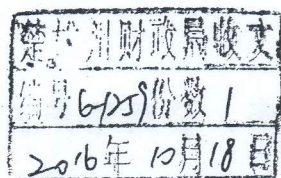 楚州财政局收文
编号 6-1259 份数 1
2016年 10月18日